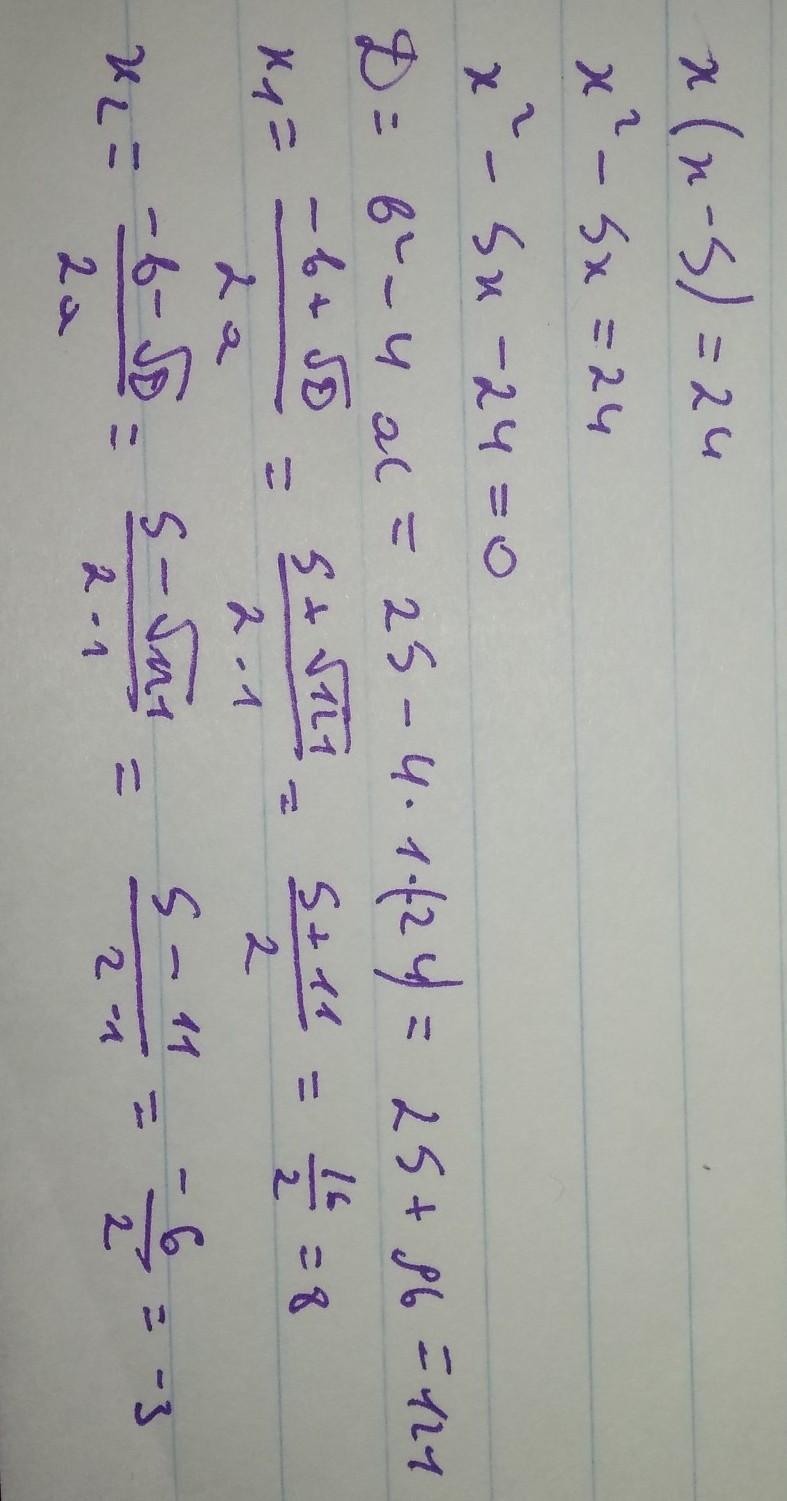 x(x-5)=24
x² - 5x = 24
x² - 5x - 24 = 0
D = b² - 4ac = 25 - 4·1·(-24) = 25 + 96 = 121
x₁ = (-b+√D)/2a = (5+√121)/2·1 = (5+11)/2 = 16/2 = 8
x₂ = (-b-√D)/2a = (5-√121)/2·1 = (5-11)/2·1 = -6/2 = -3